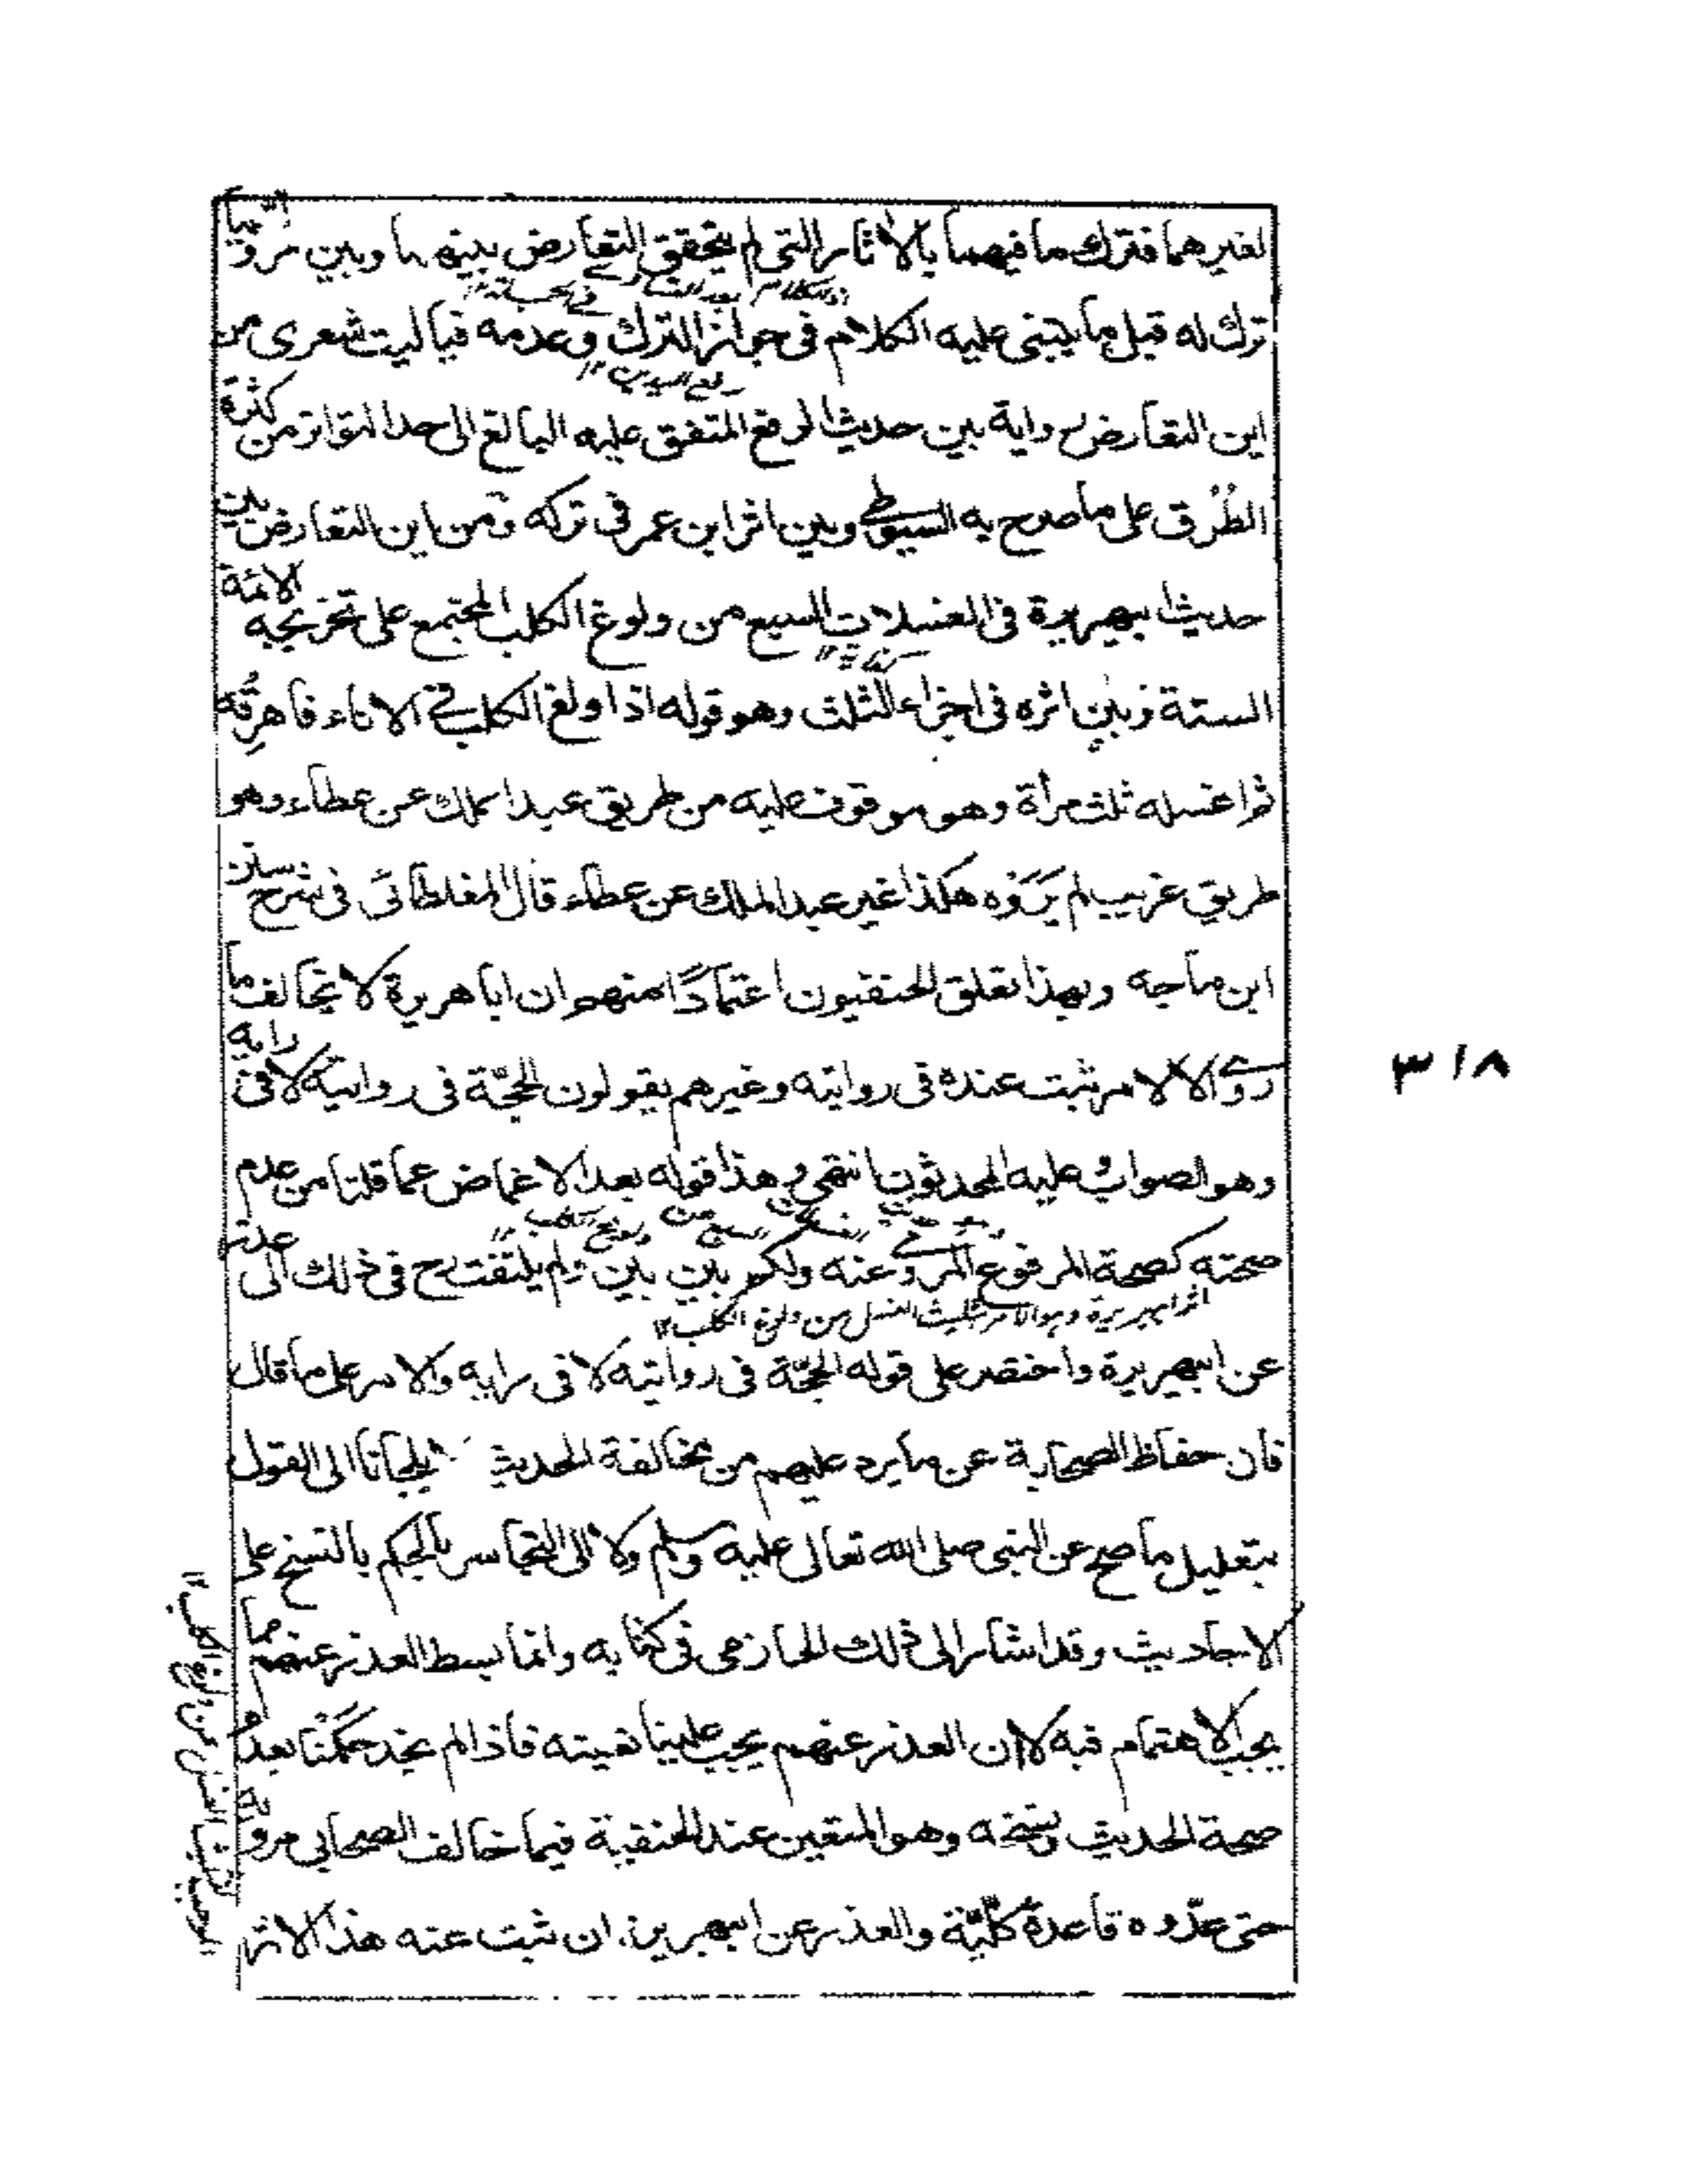 لغيرهما فترك ما فيهما بالاثار التى لم يتحقق التعارض بينهما وبين مرويا
ترك له قبل ما يبتنى عليه الكلام فى جواز الترك وعدمه فيا ليت شعرى من
رفع اليدين ١٢
اين التعارض رواية بين حديث الرفع المتفق عليه البالغ الى حد التواتر من كثرة
الطُرُق على ما صرح به السيوطى وبين اثر ابن عمر فى تركه ومن اين التعارض بين
حديث ابيهريرة فى الغسلات السبع من ولوغ الكلب المجتمع على تخريجه الائمة
الستة وبين اثره فى اجزاء الثلث وهو قوله اذا ولغ الكلب فى الاناء فاهرقه
ثم اغسله ثلث مرأة وهو موقوف عليه من طريق عبد الملك عن عطاء وهو
طريق غريب لم يَرَوْه هكذا غير عبد الملك عن عطاء قال المغلطائى فى شرح سنن
ابن ماجه وبهذا تعلق الحنفيون اعتمادًا منهم ان ابا هريرة لا يخالف ما
روى الا لامر ثبت عنده فى روايته وغيرهم يقولون الحجّة فى روايته لا فى رايه
وهو الصواب عليه المحدثون انتهى وهذا قوله بعد الاغماض عما قلنا من عدم
صحته كصحة المرفوع المروى عنه ولكم بين بين ولم يلتفت ح فى ذلك الى عذر
اثر ابيهريرة وهو الامر بتثليث الغسل من ولوغ الكلب ١٢
عن ابيهريرة واختصر على قوله الحجّة فى روايته لا فى رايه والامر على ما قال
فان حفاظ الصحابة عن ما يرد عليهم من مخالفة الحديث يلجأنا الى القول
بتعليل ما صح عن النبى صلى الله تعالى عليه وسلم ولا الى التجاسر بالحكم بالنسخ على
الاحاديث وقد اشار الى ذلك الحازمى فى كتابه وانما بسط العذر عنهم مما
يجب الاهتمام فيه لان العذر عنهم يجب علينا نفيته فاذا لم نجد حكمنا بعد
صحة الحديث ونسخه وهو المتعين عند الحنفية فيما خالف الصحابى مرويه
حتى عدّوه قاعدة كلّيّة والعذر عن ابيهريرة ان ثبت عنه هذا الاثر
٣١٨